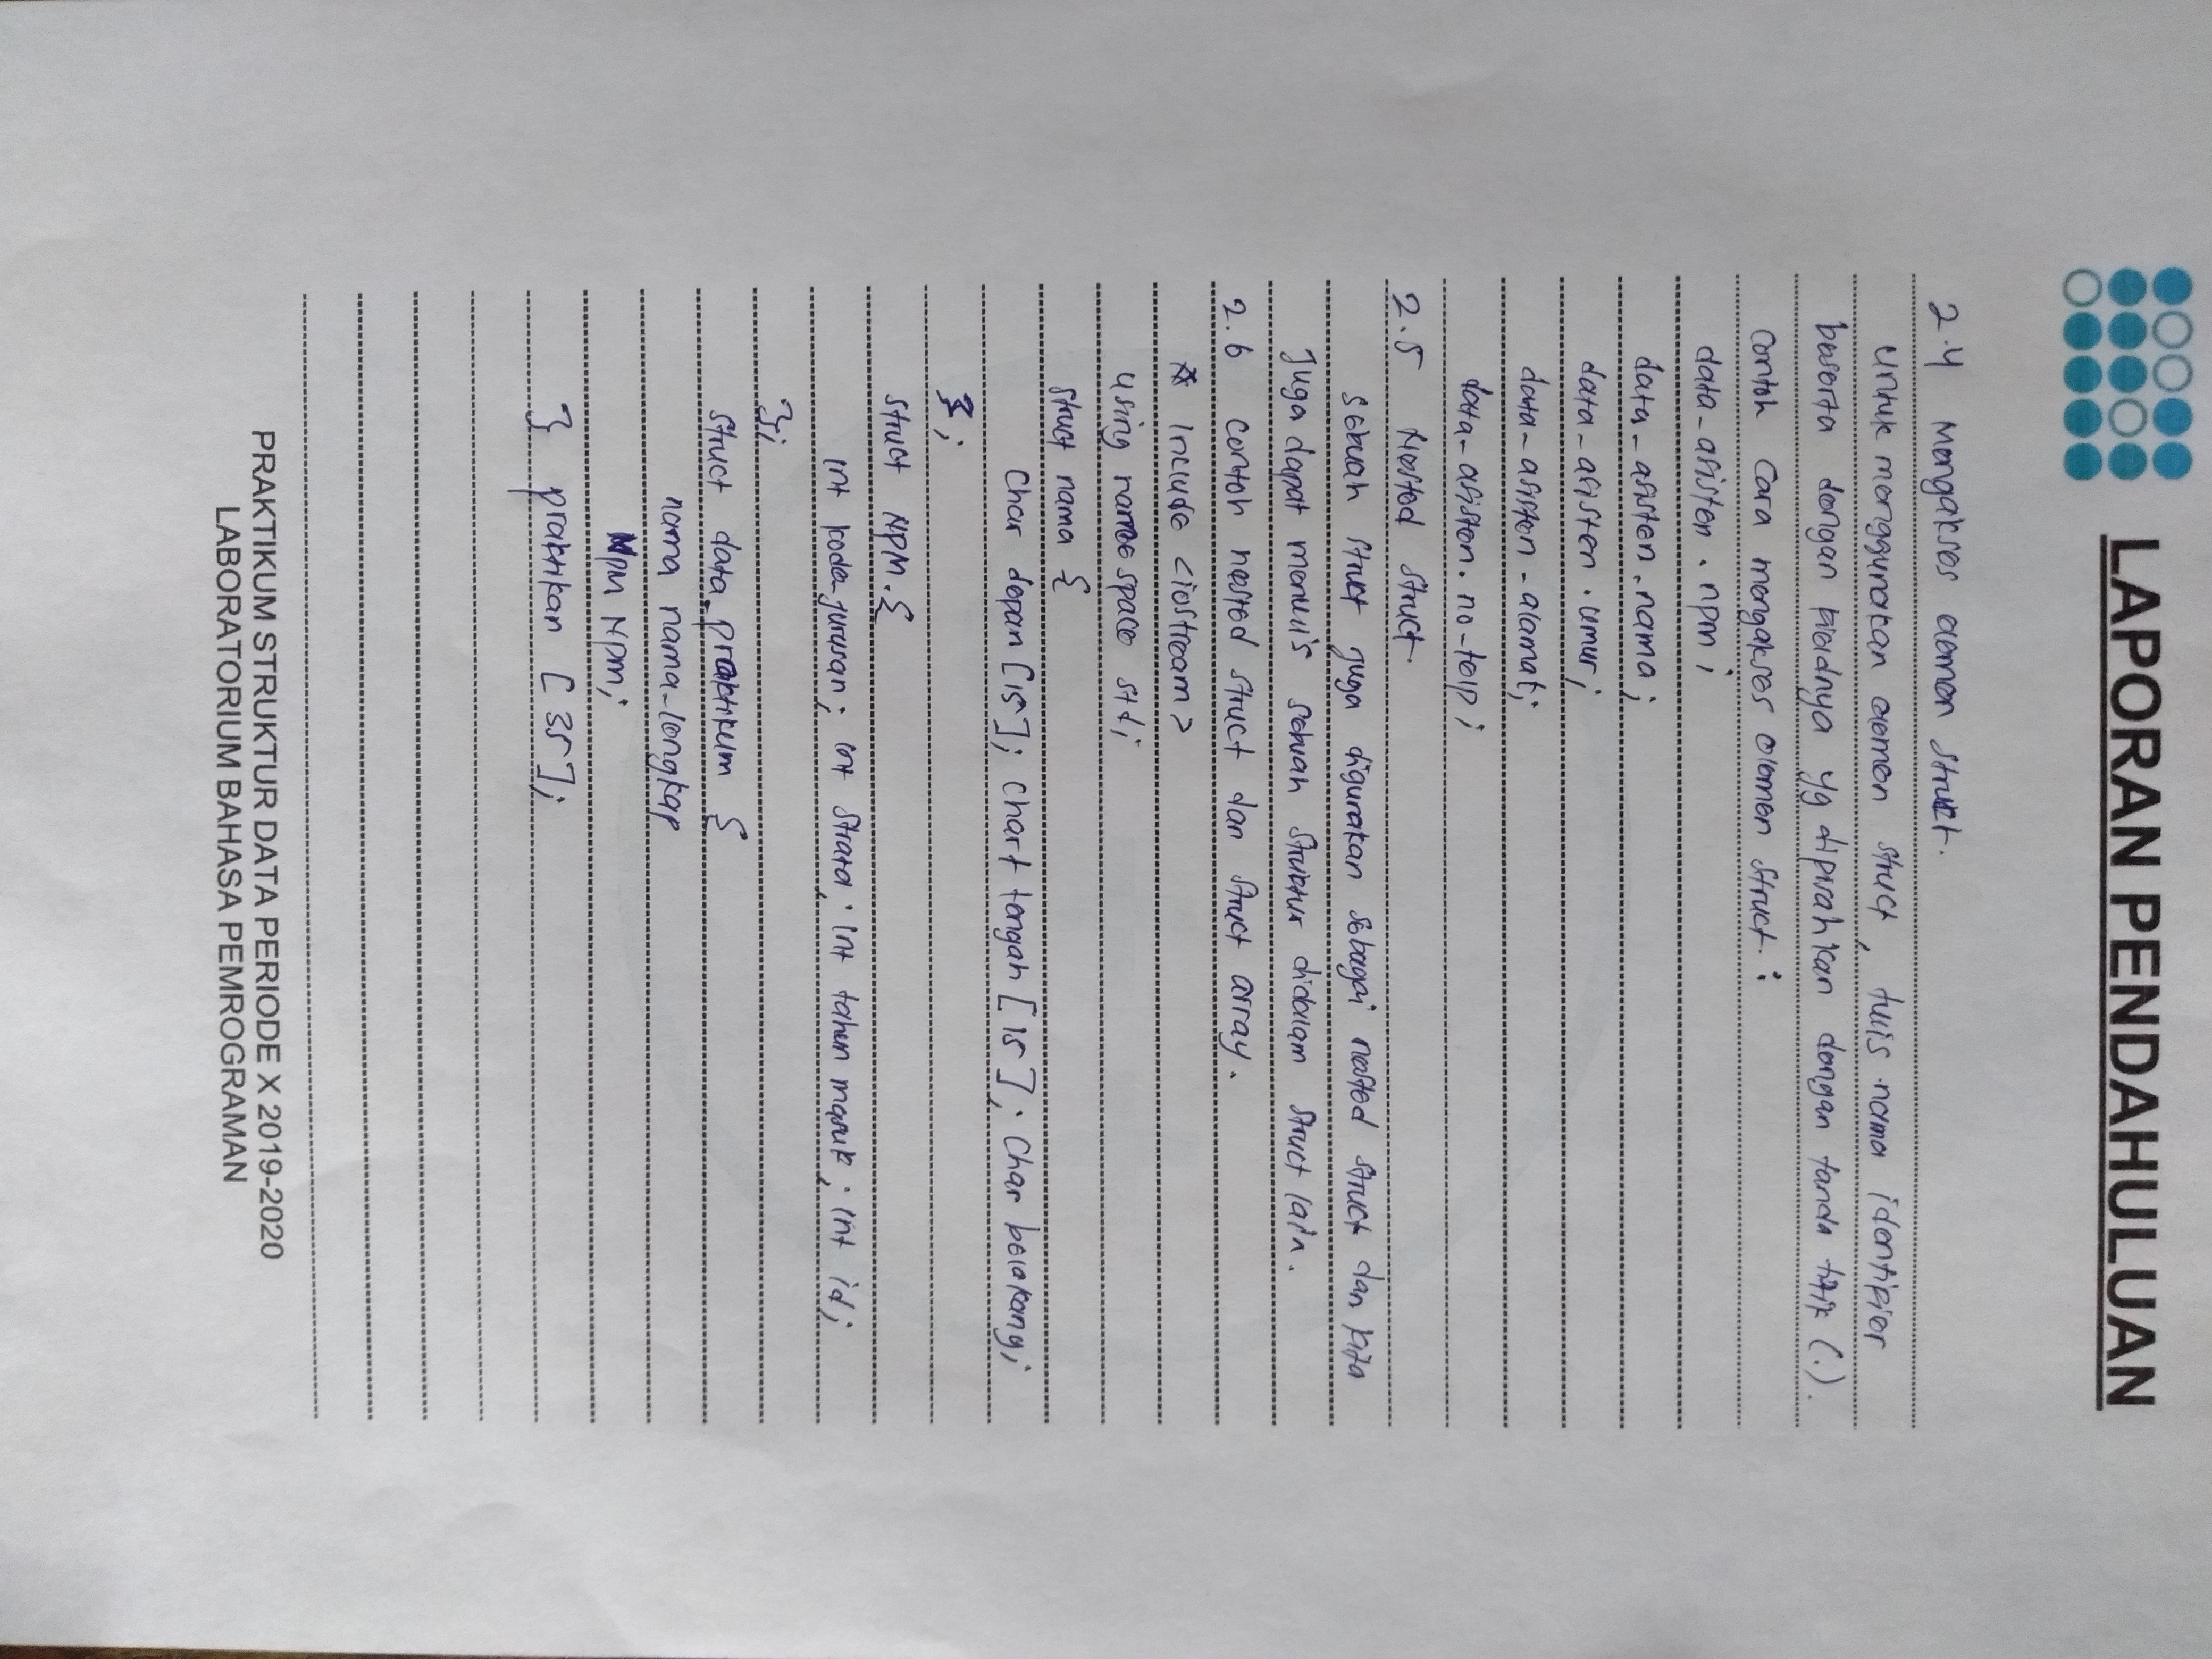 LAPORAN PENDAHULUAN
2.4 Mengakses elemen struct.
Untuk menggunakan elemen struct, tulis nama identifier
beserta dengan fieldnya yg dipisahkan dengan tanda titik (.).
Contoh Cara mengakses elemen struct :
data_asisten . npm ;
data_asisten . nama ;
data_asisten . umur ;
data_asisten - alamat ;
data_asisten . no_telp ;
2.5 Nested Struct.
sebuah struct juga digunakan sebagai nested struct dan kita
juga dapat menulis sebuah struktur didalam struct lain.
2.6 contoh nested struct dan struct array.
# include <iostream>
using namespace std;
struct nama {
Char depan [15]; Chart tengah [15]; Char belakang;
};
struct NPM . {
int kode_jurusan; int strata; int tahun masuk; int id;
};
struct data_praktikum {
nama nama_lengkap
NPM Npm;
} praktikan [35];
PRAKTIKUM STRUKTUR DATA PERIODE X 2019-2020
LABORATORIUM BAHASA PEMROGRAMAN